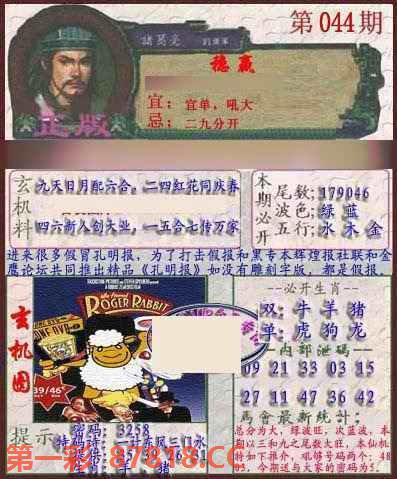 第044期
諸葛亮
稳赢
宜:宜单,吼大
忌:二九分开
正版
玄机料
九天日月配六合,二四红花同庆春
四六新人创大业,一五合七传万家
本期必开
尾数:179046
波色:绿 蓝
五行:水 木 金
进来很多假冒孔明报,为了打击假报和黑专本辉煌报社联和金
鹰论坛共同推出精品《孔明报》如没有雕刻字版,都是假报,
玄机图
ROGER RABBIT
39/46
--必开生肖--
双:牛 羊 猪
单:虎 狗 龙
--内部泄码--
09 21 33 03 15
27 11 47 36 42
馬會最新統計:
总分为大,绿波旺,次蓝波,本
期以三和九之尾数大旺,本仙机
提示
密码: 3258
第一彩:87818.CC